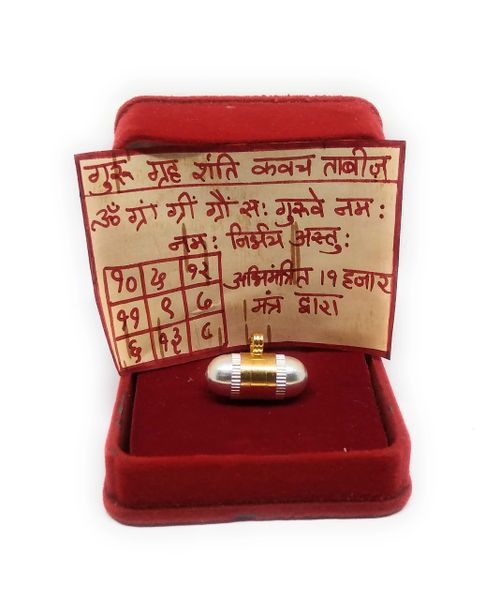 गुरू ग्रह शांति कवच ताबीज़
ॐ ग्रां ग्रीं ग्रौं स: गुरूवे नम:
नम: निर्भय अस्तु:
१० ५ १२
११ ९ ७
६ १३ ८
अभिमंत्रित १९ हजार
मंत्र द्वारा